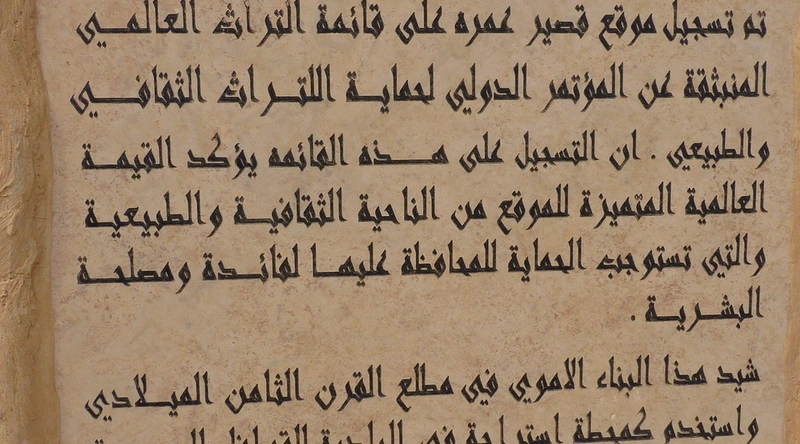 تم تسجيل موقع قصير عمره على قائمة التراث العالمي
المنبثقة عن المؤتمر الدولي لحماية اللتراث الثقافي
والطبيعي . ان التسجيل على هذه القائمه يؤكد القيمة
العالمية المتميزة للموقع من الناحية الثقافية والطبيعية
والتي تستوجب الحماية للمحافظة عليها لفائدة ومصلحة
البشرية .
شيد هذا البناء الاموي في مطلع القرن الثامن الميلادي
واستخدم كمحطة استراحة في